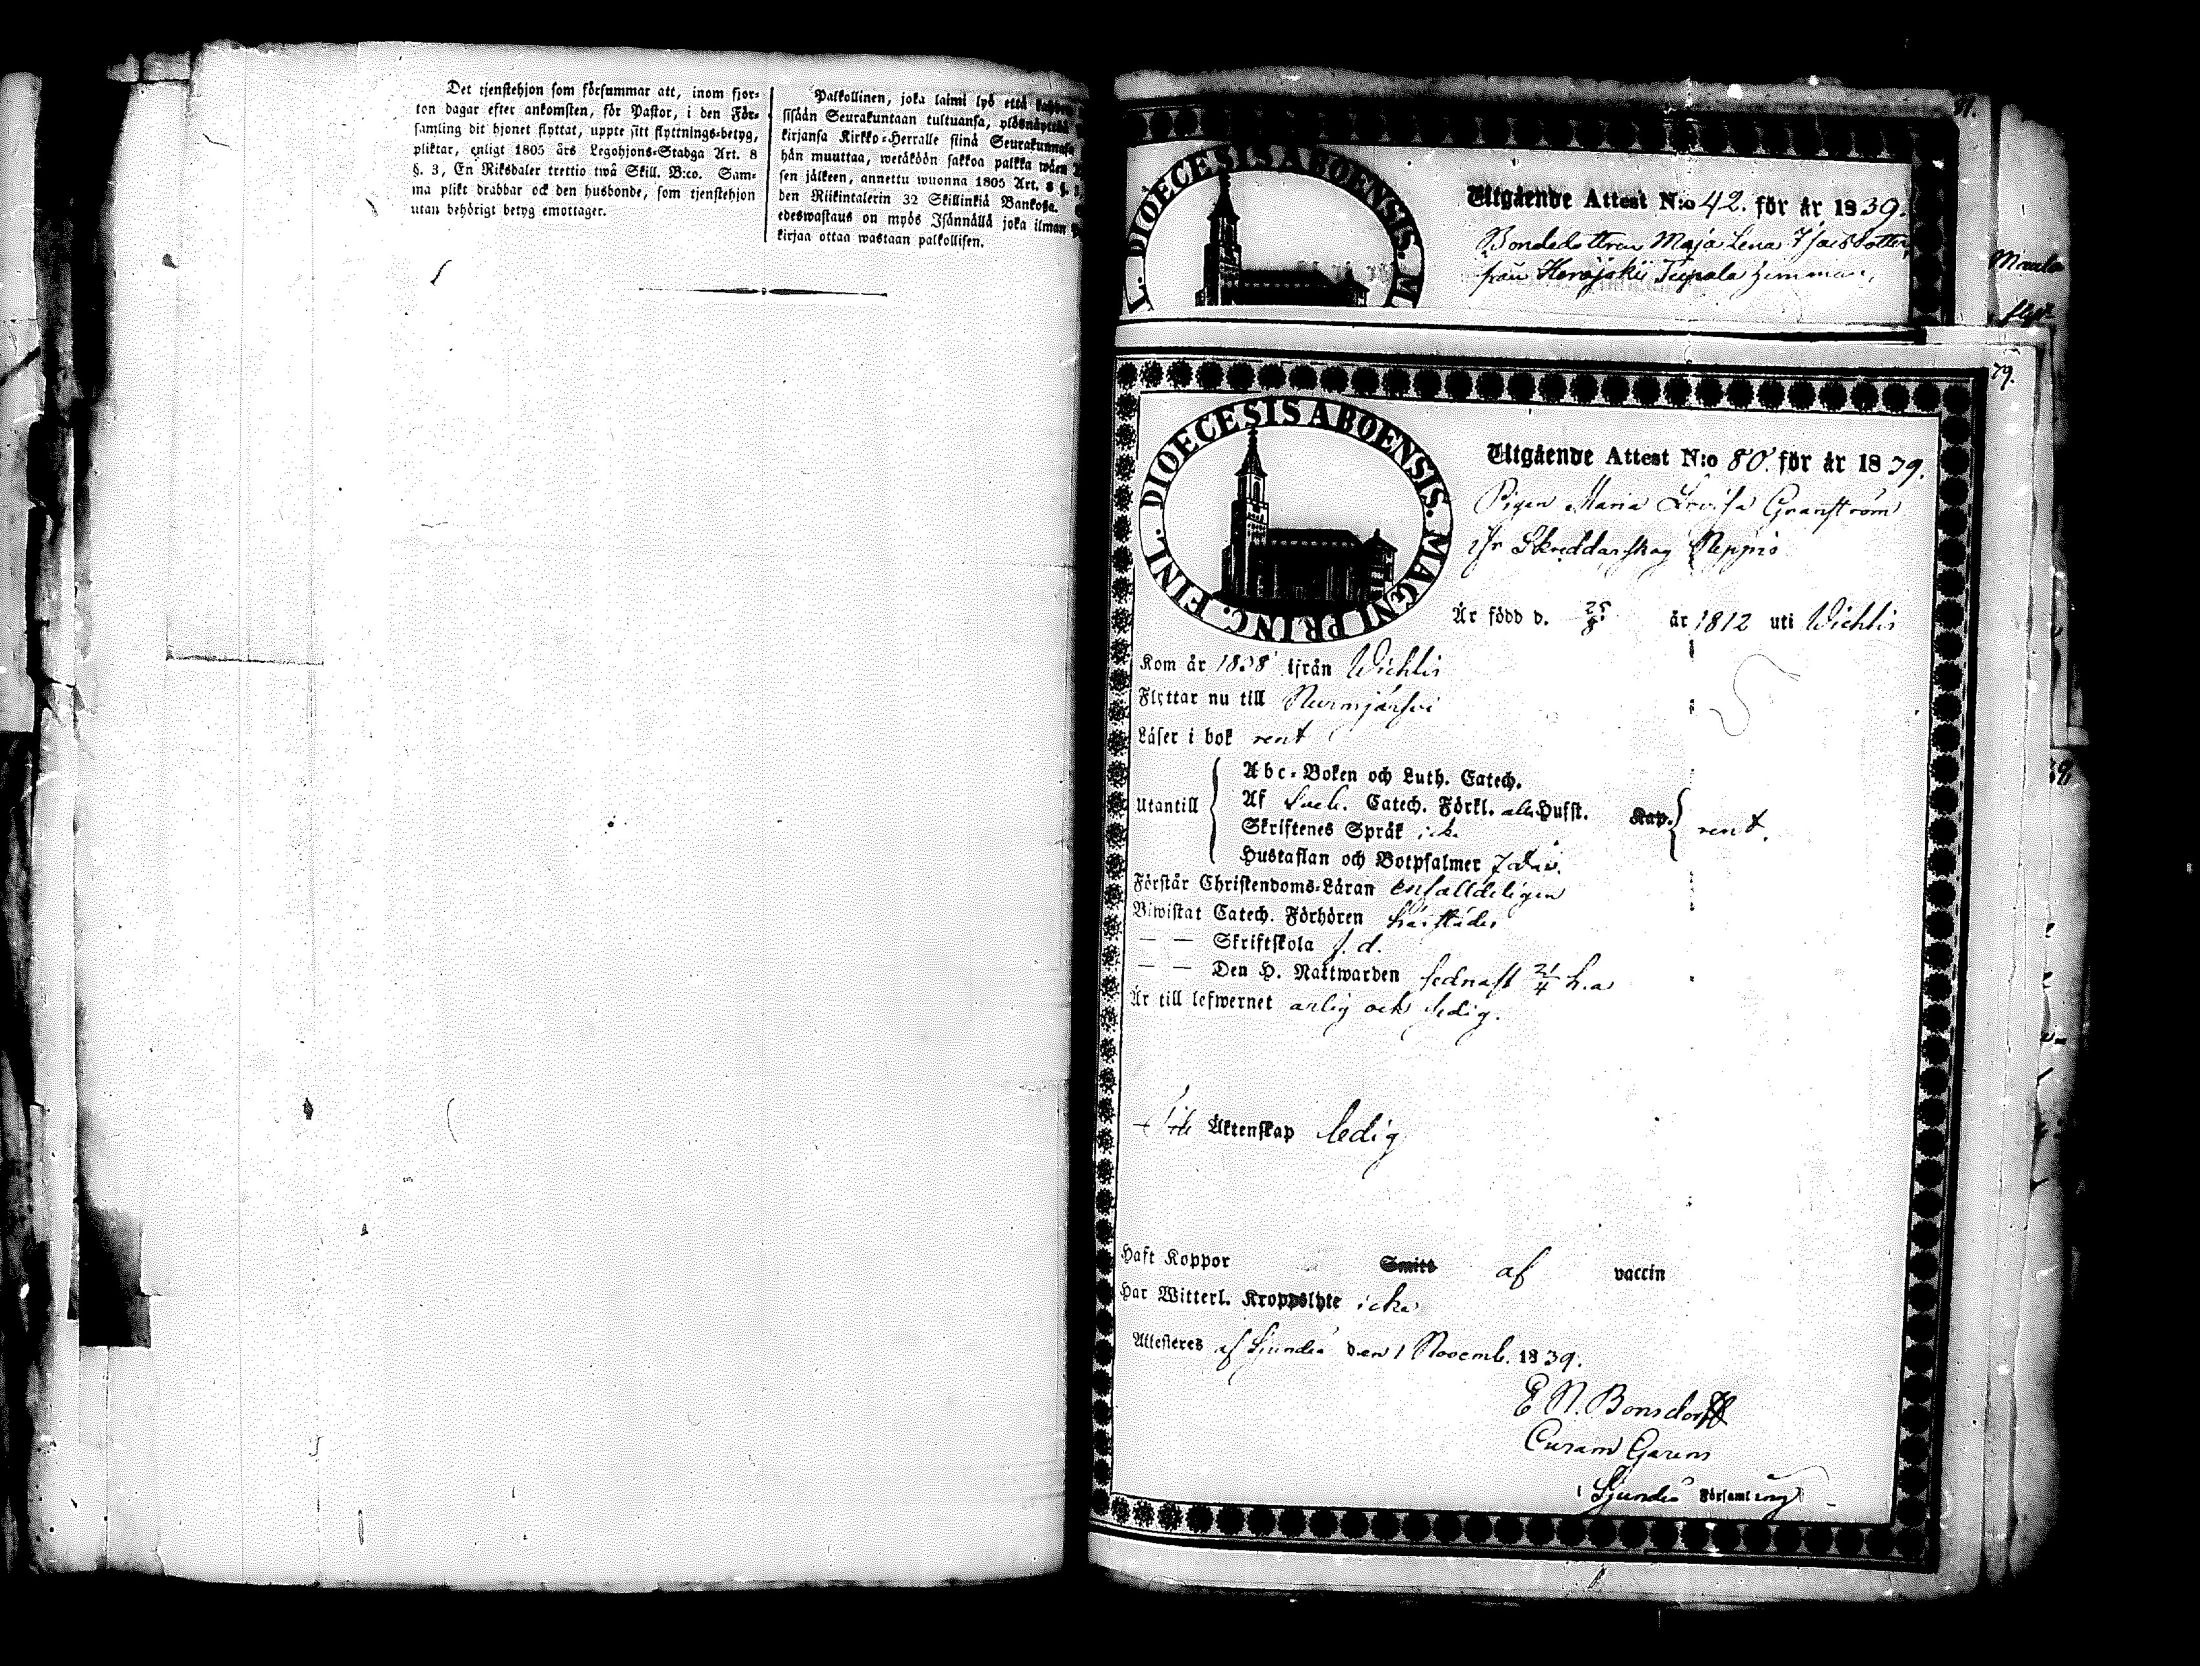 Det tjenstehjon som försummar att, inom fjor-
ton dagar efter ankomsten, för Pastor, i den För-
samling dit hjonet flyttat, uppte sitt flyttnings-betyg,
pliktar, enligt 1805 års Legohjons-Stadga Art. 8
§. 3, En Riksdaler trettio twå Skill. B:co. Sam-
ma plikt drabbar ock den husbonde, som tjenstehjon
utan behörigt betyg emottager.
Palkollinen, joka laimi lyö että
sisään Seurakuntaan tultuansa, ylösnäyttää
kirjansa Kirkko-Herralle siinä Seurakunnasa
hän muuttaa, wetäköön sakkoa palkka
sen jälkeen, annettu wuonna 1805 Art. 8 §.
den Riikintalerin 32 Skillinkiä Bankosa.
edeswastaus on myös Isännällä joka ilman
kirjaa ottaa wastaan palkollisen.
L. DIOECESIS ABOENSIS. M
Utgående Attest N:o 42. för år 1839.
Bondedottren Maja Lena Isacsdotter
från Heräjoki Tupala hemman,
DIOECESIS ABOENSIS. MAGNI PRINC. FINL.
79.
Utgående Attest N:o 80. för år 1839.
Pigan Maria Lovisa Granström
ifr Skreddarskog Peppis
Är född d. 25/8 år 1812 uti Wichtis
Kom år 1838 ifrån Wichtis
Flyttar nu till Nurmijärfvi
Läser i bok rent
Utantill
Abc-Boken och Luth. Catech.
Af Sveb. Catech. Förkl. alla Hufst. Kap.
Skriftenes Språk ick.
Hustaflan och Botpsalmer
rent.
Förstår Christendoms-Läran enfalldeligen
Biwistat Catech. Förhören härstädes
— — Skriftskola s. d.
— — Den H. Nattwarden sednast 21/4 h.a
Är till lefwernet ärlig och ledig.
Äktenskap ledig
Haft Koppor Smitt af vaccin
Har Witterl. Kroppslyte icke
Attesteres af Sjundeå den 1 Novemb. 1839.
E N. Bonsdorff
Curam Gerens
i Sjundeå Församling